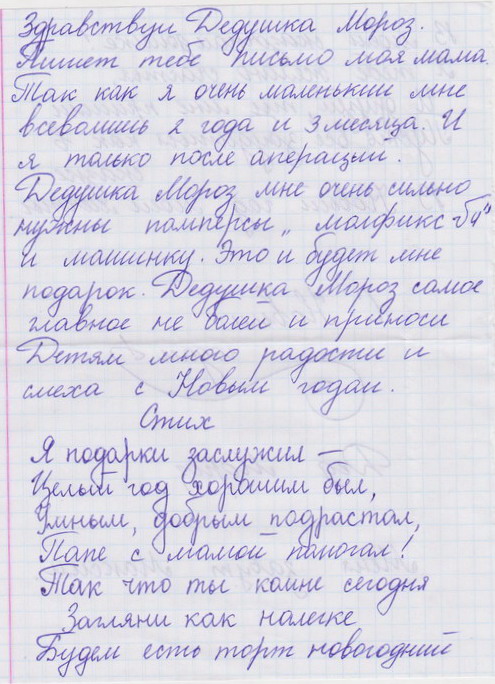 Здравствуй Дедушка Мороз.
Пишет тебе письмо моя мама.
Так как я очень маленький мне
всеволишь 2 года и 3 месяца. И
я только после аперации.
Дедушка Мороз мне очень сильно
нужны памперсы „молфикс-5ч"
и машинку. Это и будет мне
подарок. Дедушка Мороз самое
главное не балей и приноси
Детям много радости и
смеха с Новым годам.
Стих
Я подарки заслужил —
Целый год хорошим был,
Умным, добрым подрастал,
Папе с мамой помогал!
Так что ты комне сегодня
Загляни как налегке
Будем есть торт новогодний